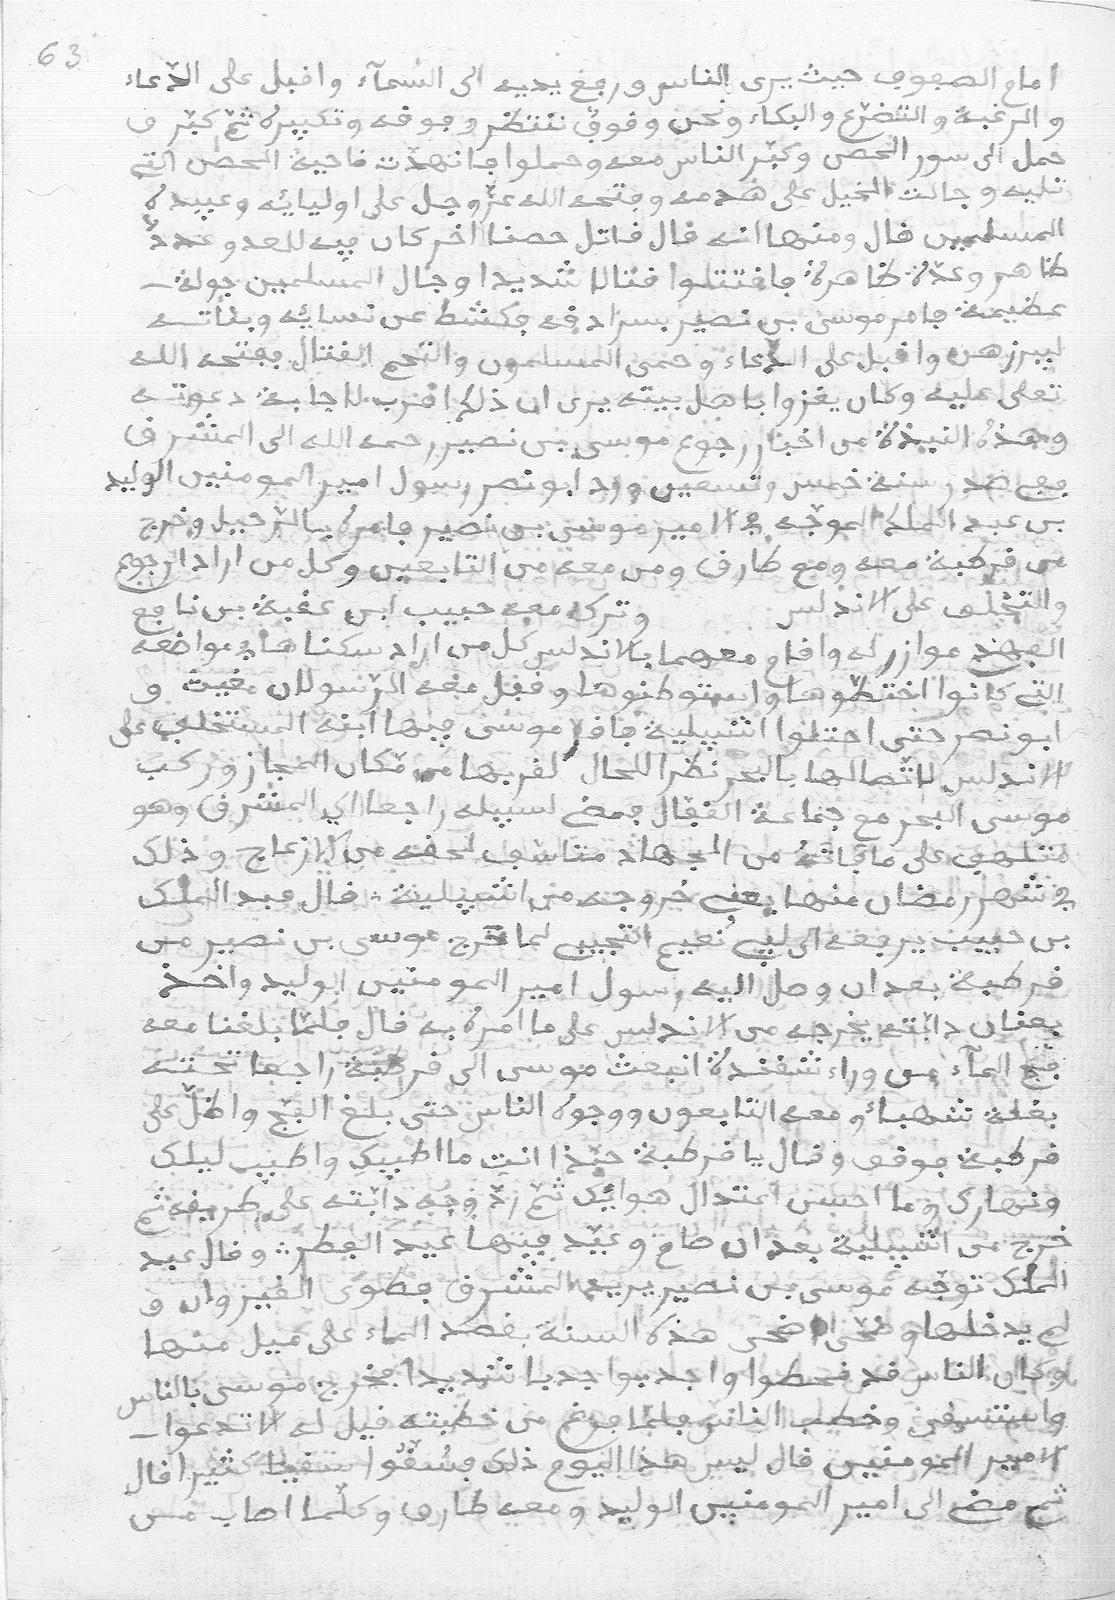 63
امام الصفوف حيث يرى الناس ورفع يديه الى السّمآء واقبل على الدّعاء
والرغبة والتضرّع والبكاء ونحن وقوف ننتظر وقوفه وتكبيره ثمّ كبّر و
حمل الى سور الحصن وكبّر الناس معه وحملوا فانهدّت ناحية الحصن التي
تليه وجالت الخيل على هدمه وفتحه الله عزّ وجلّ على اوليائه وعبيده
المسلمين قال ومنها انه قال قاتل حصنا اخر كان فيه للعدو عددٌ
ظاهر وعدّة ظاهرة فاقتتلوا قتالا شديدا وجال المسلمين جولة
عظيمة فامر موسى بن نصير بسرادقه فكشط عن نسائه وبناته
ليبرزهن واقبل على الدّعاء وحمى المسلمون والتحم القتال ففتحه الله
تعلى عليه وكان يغزوا باهل بيته يرى ان ذلك اقرب لاجابة دعوته
وهذه النبذة من اخبار رجوع موسى بن نصير رحمه الله الى المشرق
ففي صدر سنة خمس وتسعين ورد ابو نصر رسول امير المومنين الوليد
بن عبد الملك الموجّه في الامير موسى بن نصير فامره بالرّحيل وخرج
من قرطبة معه ومع طارق ومن معه من التابعين وكل من اراد الرجوع
والتخلّف على الاندلس وترك معه حبيب ابن عقبة بن نافع
الفهري موازر له واقام معهما بالاندلس كل من اراد سكناها في مواضعه
التي كانوا اختطّوها واستوطنوها وقفل معه الرّسولان مغيث و
ابو نصر حتى احتلوا اشبيلية فاقر موسى فيها ابنه المستخلف على
الاندلس لاتّصالها بالبحر نظرا للحال لقربها من مكان المجاز وركب
موسى البحر مع جماعة القفّال فمضى لسبيله راجعا الى المشرق وهو
متلهف على ما فاته من الجهاد متاسف لحقه من الازعاج وذلك
في شهر رمضان منها يعني خروجه من اشبيلية قال عبد الملك
بن حبيب يرفعه الى لبي نُعيم التجيبي لما خرج موسى بن نصير من
قرطبة بعد ان وصل اليه رسول امير المومنين الوليد واخذ
بعنان دابّته يخرجه من الاندلس على ما امره به قال فلمّا بلغنا معه
فج المآء من وراء شقندة انبعث موسى الى قرطبة راجعا تحته
بغلة شهباء ومعه التابعون ووجوه الناس حتى بلغ الفجّ واطلّ على
قرطبة فوقف وقال يا قرطبة حبّذا انت ما اطيبك واطيب ليلك
ونهارك وما احسن اعتدال هوائك ثمّ ردّ وجه دابّته على طريقه ثم
خرج من اشبيلية بعد ان صام وعيّد فيها عيد الفطر وقال عبد
الملك توجّه موسى بن نصير يريد المشرق فطوى القيروان و
لم يدخلها وضحّى اضحى هذه السنة بقصد الماء على ميل منها
وكان الناس قد قحطوا واجدبوا جدبا شديدا فخرج موسى بالناس
واستسقى وخطب الناس فلمّا فرغ من خطبته قيل له الا تدعوا
لامير المومنين قال ليس هذا اليوم ذلك فسُقُوا سقيا كثيرا قال
ثم مضى الى امير المومنين الوليد ومعه طارق وكلّما اصاب من